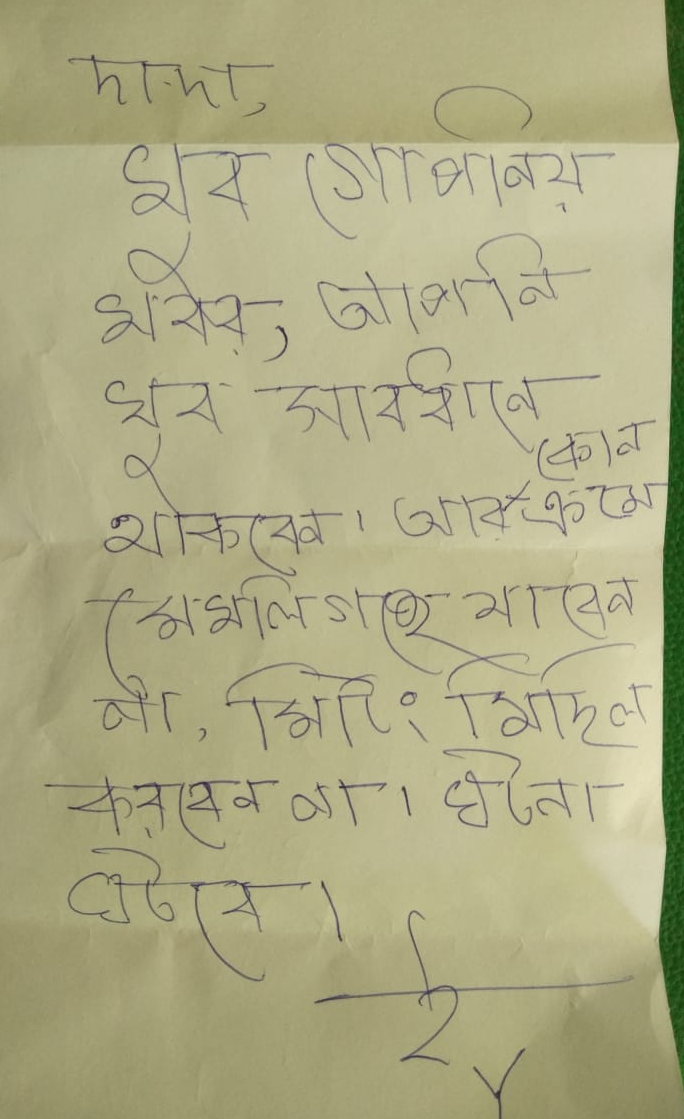 দাদা,
খুব গোপনিয়
খবর, আপনি
খুব সাবধানে
থাকবেন। আর কোন
ক্রমে
মেমলিগঞ্জে যাবেন
না, মিটিং মিছিল
করবেন না। ঘটনা
ঘটবে।